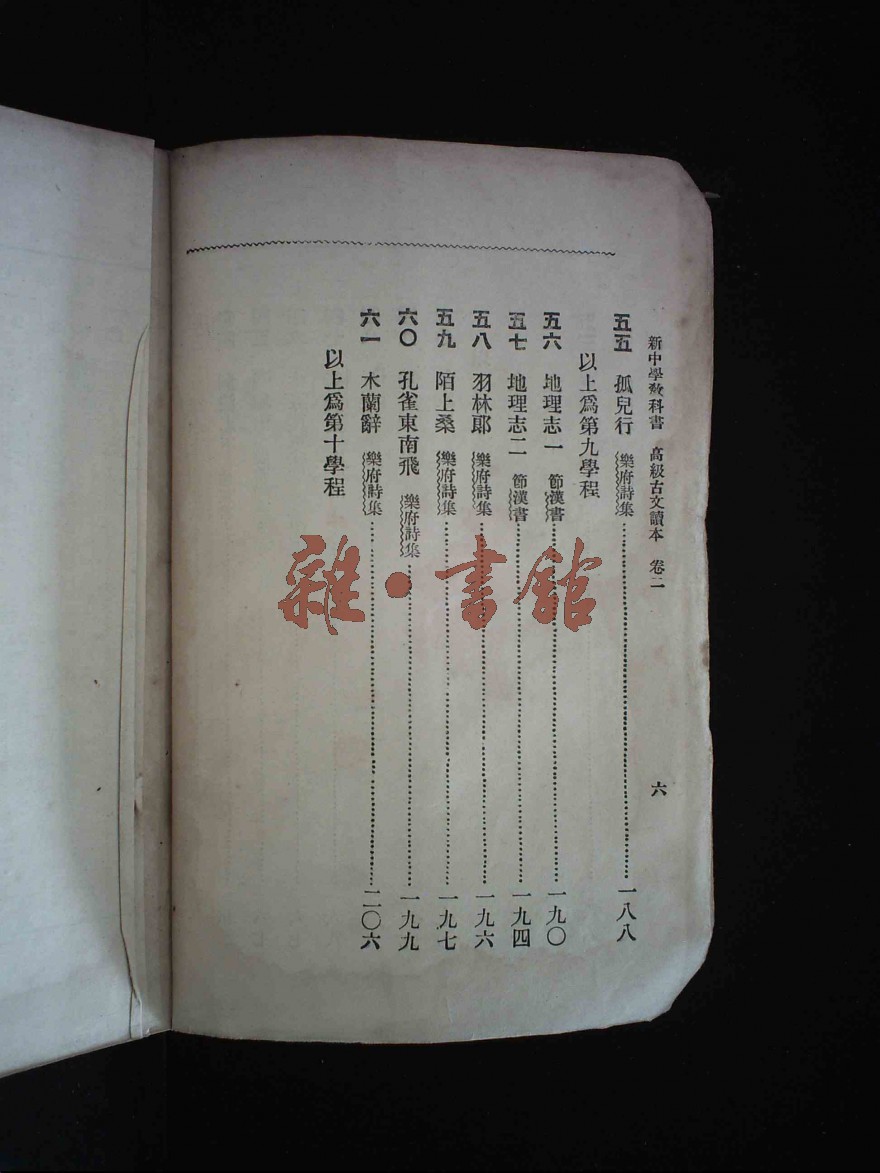 新中學敎科書 高級古文讀本 卷二 六
五五 孤兒行 樂府詩集 一八八
以上爲第九學程
五六 地理志一 節漢書 一九〇
五七 地理志二 節漢書 一九四
五八 羽林郞 樂府詩集 一九六
五九 陌上桑 樂府詩集 一九七
六〇 孔雀東南飛 樂府詩集 一九九
六一 木蘭辭 樂府詩集 二〇六
以上爲第十學程
雜·書館